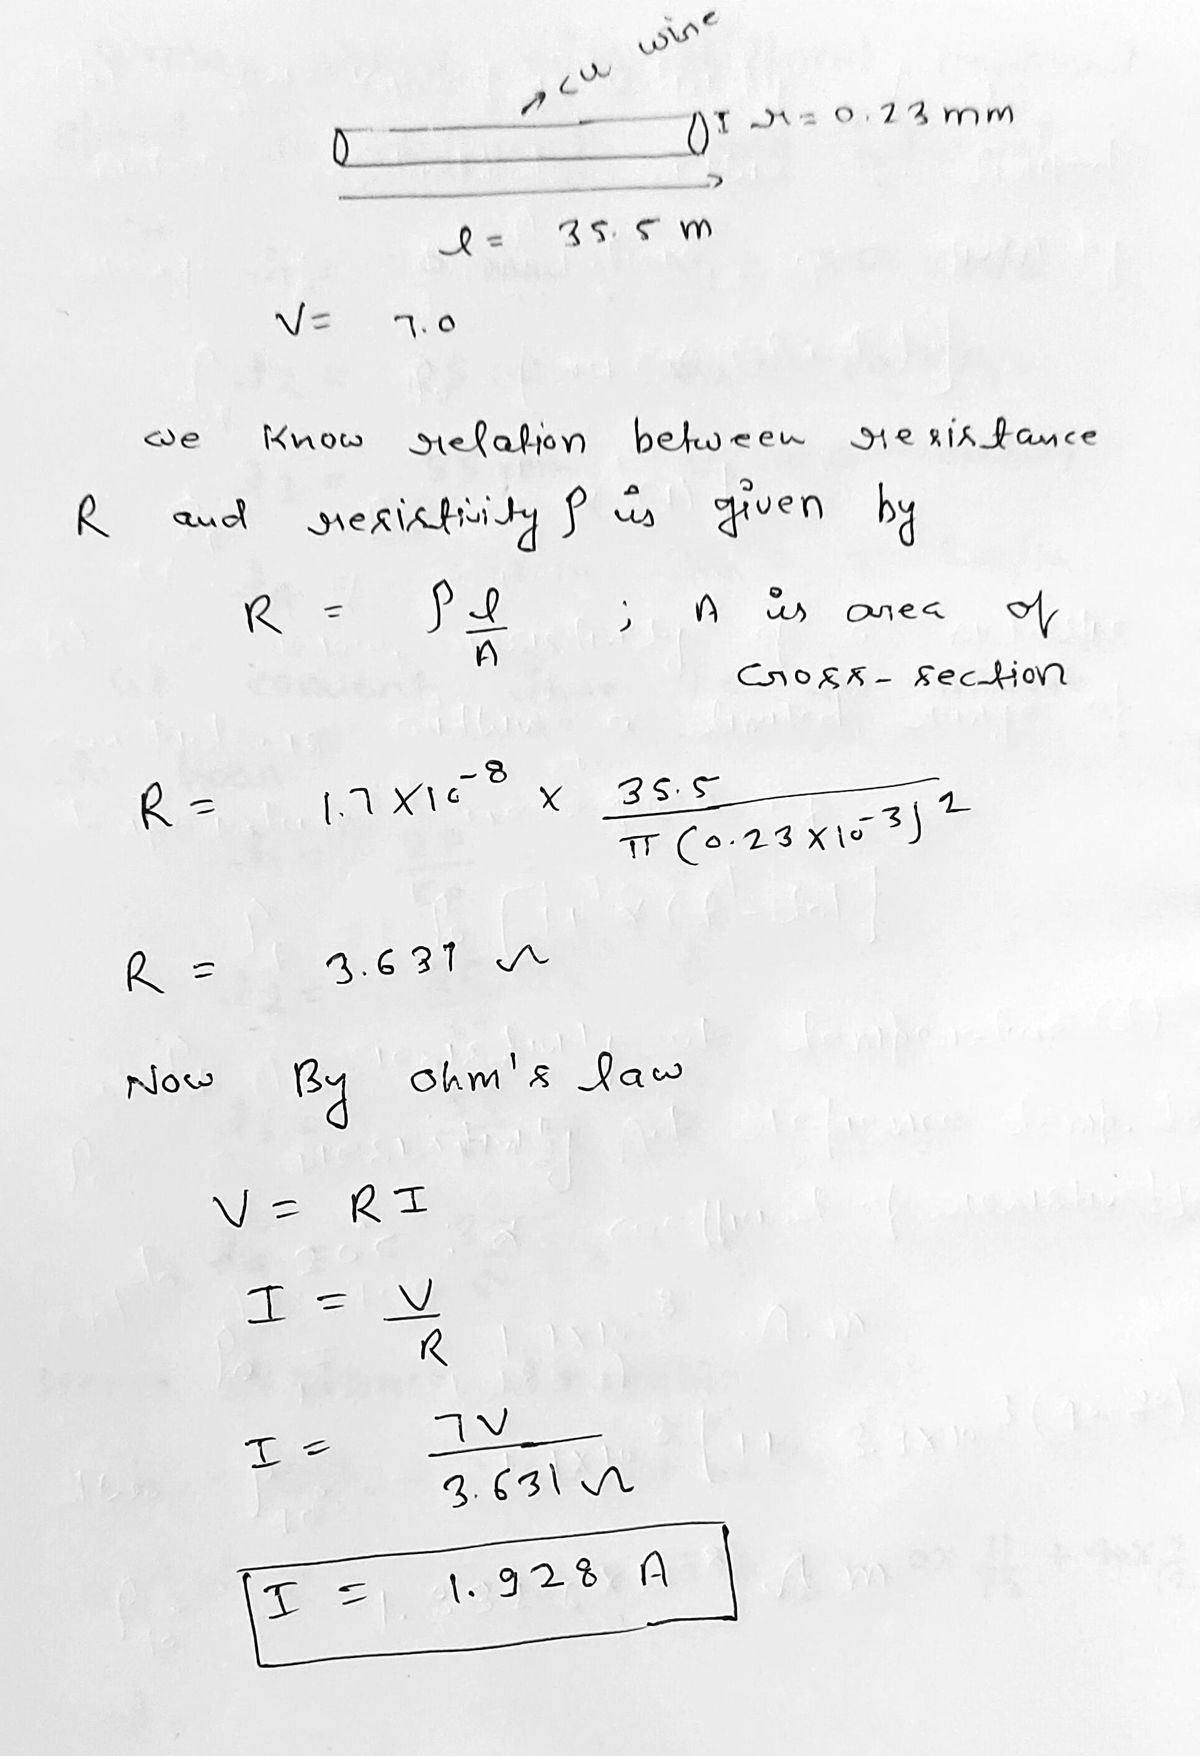 cu wire
r = 0.23 mm
l = 35.5 m
V = 7.0
we know relation between resistance
R and resistivity ρ is given by
R = ρ l/A ; A is area of
cross-section
R = 1.7 × 10^-8 × 35.5 / π (0.23 × 10^-3)^2
R = 3.631 Ω
Now By ohm's law
V = R I
I = V/R
I = 7V / 3.631 Ω
I = 1.928 A